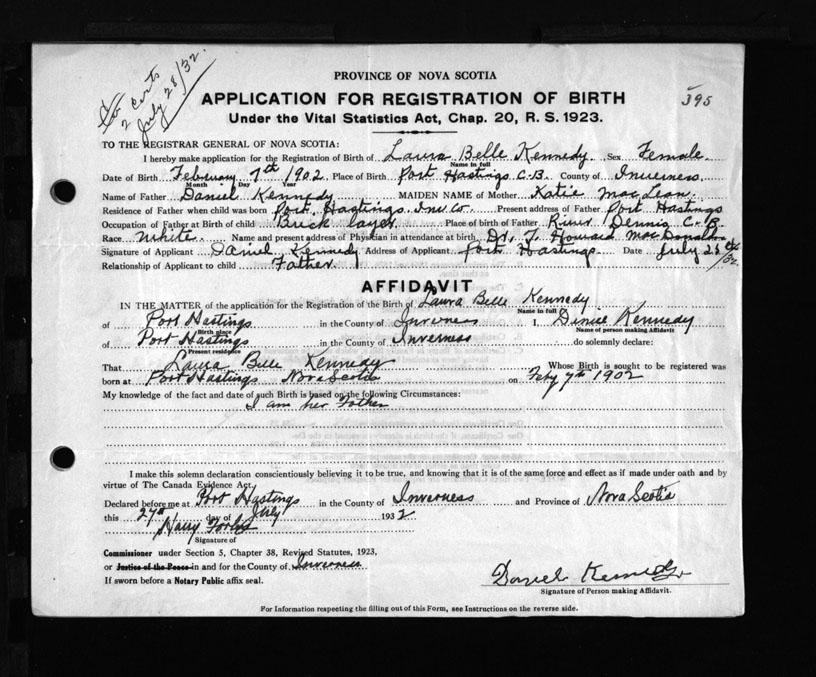 2 certs
July 28/32.
PROVINCE OF NOVA SCOTIA
395
APPLICATION FOR REGISTRATION OF BIRTH
Under the Vital Statistics Act, Chap. 20, R. S. 1923.
TO THE REGISTRAR GENERAL OF NOVA SCOTIA:
I hereby make application for the Registration of Birth of Laura Belle Kennedy Sex Female.
Name in full
Date of Birth February 7th 1902 Place of Birth Port Hastings C.B. County of Inverness
Month Day Year
Name of Father Daniel Kennedy MAIDEN NAME of Mother Katie MacLean
Residence of Father when child was born Port Hastings Inv Co. Present address of Father Port Hastings
Occupation of Father at Birth of child Brick layer Place of birth of Father River Dennis C.B.
Race White Name and present address of Physician in attendance at birth Dr. J. Howard MacDonald
Signature of Applicant Daniel Kennedy Address of Applicant Port Hastings Date July 26 /32.
Relationship of Applicant to child Father
AFFIDAVIT
IN THE MATTER of the application for the Registration of the Birth of Laura Belle Kennedy
Name in full
of Port Hastings in the County of Inverness I, Kennedy
Birth place Name of person making Affidavit
of Port Hastings in the County of Inverness do solemnly declare:
Present residence
That Laura Belle Kennedy Whose Birth is sought to be registered was
born at Port Hastings Nova Scotia on Feby 7th 1902
My knowledge of the fact and date of such Birth is based on the following Circumstances:
I am her Father
I make this solemn declaration conscientiously believing it to be true, and knowing that it is of the same force and effect as if made under oath and by
virtue of The Canada Evidence Act.
Declared before me at Port Hastings in the County of Inverness and Province of Nova Scotia
this 27th day of July 1932
Harry Forbes
Signature of
Commissioner under Section 5, Chapter 38, Revised Statutes, 1923,
or Justice of the Peace in and for the County of Inverness
If sworn before a Notary Public affix seal.
Daniel Kennedy
Signature of Person making Affidavit.
For Information respecting the filling out of this Form, see Instructions on the reverse side.